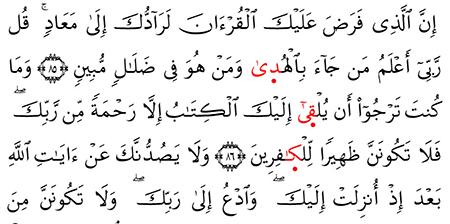 إِنَّ ٱلَّذِى فَرَضَ عَلَيْكَ ٱلْقُرْءَانَ لَرَآدُّكَ إِلَىٰ مَعَادٍ ۚ قُل
رَّبِّىٓ أَعْلَمُ مَن جَآءَ بِٱلْهُدِىٰ وَمَنْ هُوَ فِى ضَلَٰلٍ مُّبِينٍ ۝٨٥ وَمَا
كُنتَ تَرْجُوٓا۟ أَن يُلْقِىٰٓ إِلَيْكَ ٱلْكِتَٰبُ إِلَّا رَحْمَةً مِّن رَّبِّكَ ۖ
فَلَا تَكُونَنَّ ظَهِيرًا لِّلْكَٰفِرِينَ ۝٨٦ وَلَا يَصُدُّنَّكَ عَنْ ءَايَٰتِ ٱللَّهِ
بَعْدَ إِذْ أُنزِلَتْ إِلَيْكَ ۖ وَٱدْعُ إِلَىٰ رَبِّكَ ۖ وَلَا تَكُونَنَّ مِنَ